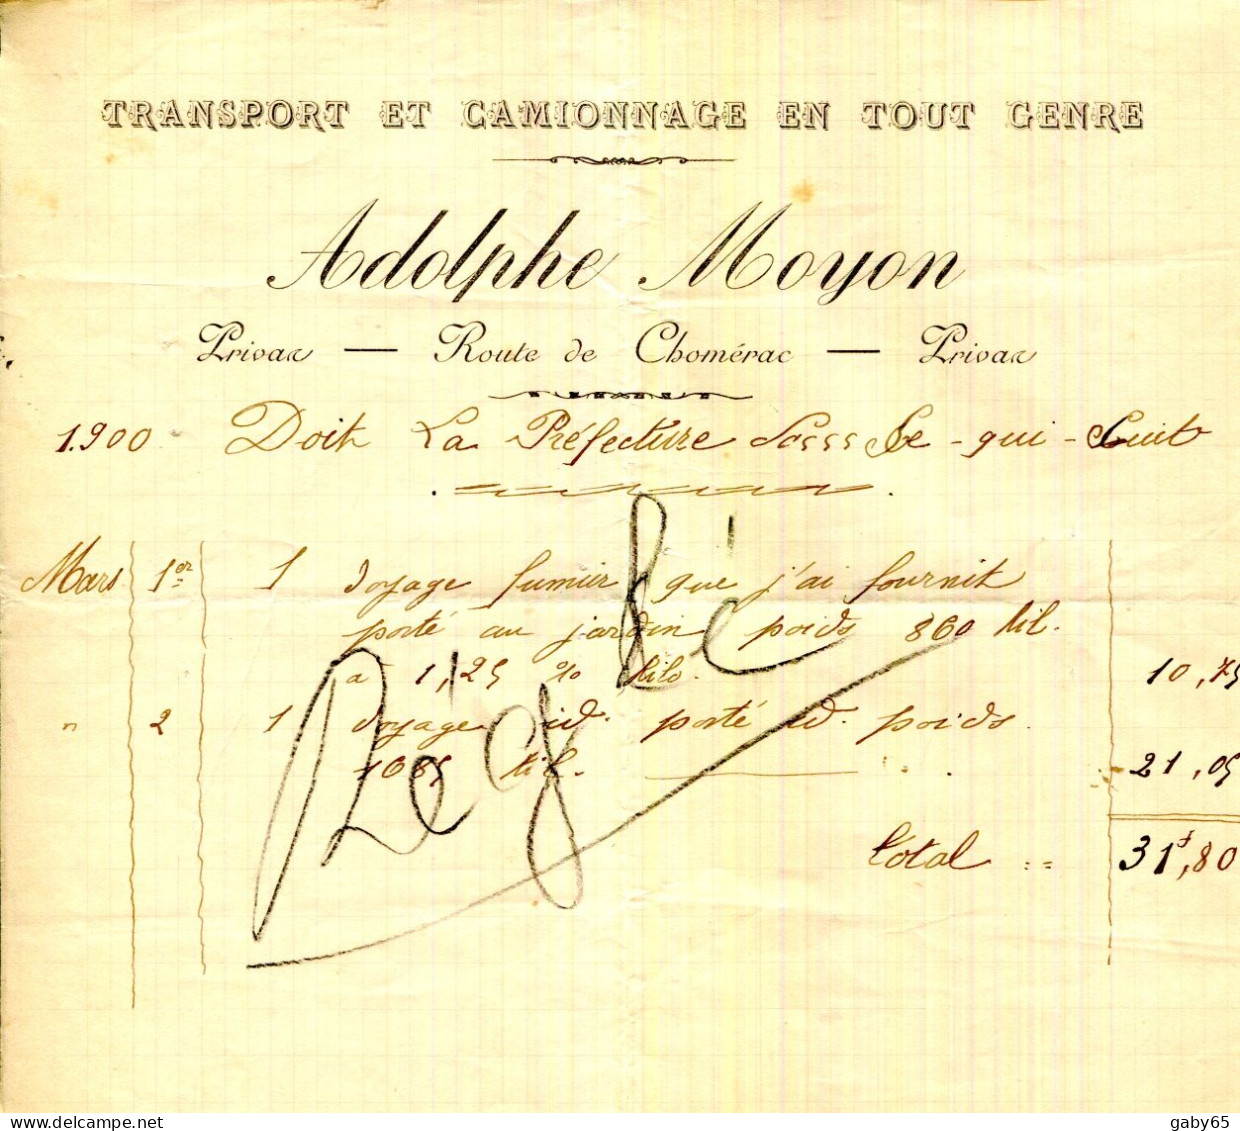 TRANSPORT ET CAMIONNAGE EN TOUT GENRE
Adolphe Moyon
Privas — Route de Chomérac — Privas
1.900 Doit La Préfecture Ce - qui - Suit
Mars 1er 1 voyage fumier que j'ai fournit
porté au jardin poids 860 kil.
a 1,25 % kilo. 10,75
" 2 1 voyage id. porté id. poids
1685 kil. 21,05
Total 31f,80
Réglé
gaby65